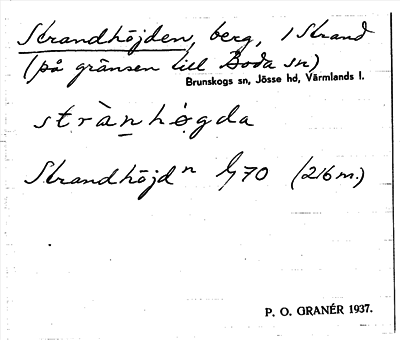 Strandhöjden, berg, i Strand
(på gränsen till Boda sn)
Brunskogs sn, Jösse hd, Värmlands l.
strànhøgda
Strandhöjdⁿ G70 (216 m.)
P. O. GRANÉR 1937.